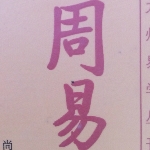 周易
尚